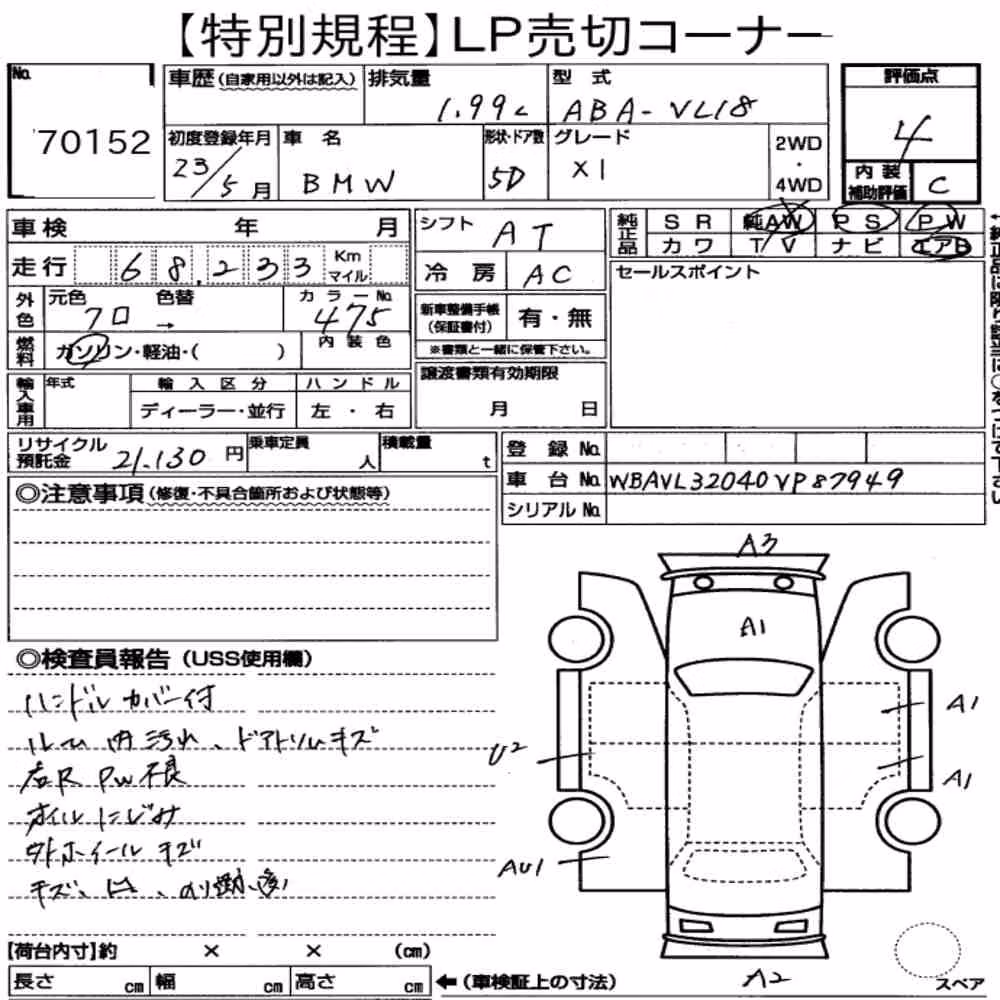 【特別規程】LP売切コーナー
No. 70152
車歴(自家用以外は記入) 排気量 1.99L 型式 ABA-VL18
評価点 4
初度登録年月 23/5月 車名 BMW 形状・ドア数 5D グレード X1 2WD・4WD
内装補助評価 C
車検 年 月
シフト AT
純正品 SR 純AW PS PW
カワ TV ナビ エアB
走行 68,233 Km マイル
冷房 AC
セールスポイント
外色 元色 クロ 色替 → カラーNo. 475
新車整備手帳(保証書付) 有・無
※書類と一緒に保管下さい。
燃料 ガソリン・軽油・( ) 内装色
輸入車用 年式 輸入区分 ハンドル
ディーラー・並行 左・右
譲渡書類有効期限
月 日
リサイクル預託金 21.130円 乗車定員 人 積載量 t
登録No.
車台No. WBAVL32040VP87949
シリアルNo.
◎注意事項(修復・不具合箇所および状態等)
◎検査員報告(USS使用欄)
ハンドルカバー付
ルーム内汚れ、ドアトリムキズ
右R PW不良
オイルにじみ
外ホイールキズ
A3
A1
A1
U2
A1
AU1
A2
【荷台内寸】約 × × (cm)
長さ cm 幅 cm 高さ cm ←(車検証上の寸法)
スペア